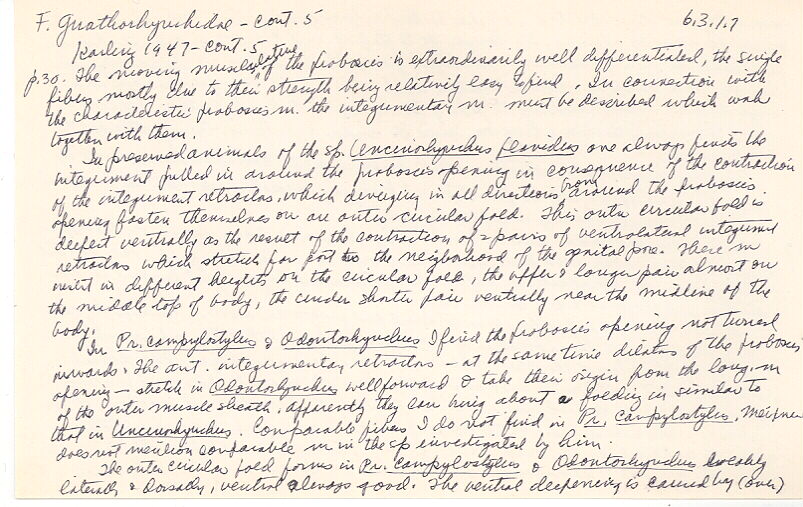 F. Gnathorhynchidae - cont. 5 6.3.1.7
Karling 1947 - cont. 5
p.30. The moving musculature of the proboscis is extraordinarily well differentiated, the single
fibers mostly due to their strength being relatively easy to find. In connection with
the characteristic proboscis m. the integumentary m. must be described which work
together with them.
In preserved animals of the sp. Uncinorhynchus flavidus one always finds the
integument pulled in around the proboscis opening in consequence of the contraction
of the integument retractors, which diverging in all directions from around the proboscis
opening fasten themselves on an outer circular fold. This outer circular fold is
deepest ventrally as the result of the contraction of 2 pairs of ventrolateral integument
retractors which stretch far post to the neighborhood of the genital pore. These m
insert in different heights on the circular fold, the upper & longer pair almost on
the middle top of body, the under shorter pair ventrally near the midline of the
body.
In Pr. campylostylus & Odontorhynchus I find the proboscis opening not turned
inwards. The ant. integumentary retractors - at the same time dilators of the proboscis
opening - stretch in Odontorhynchus well forward & take their origin from the long. m
of the outer muscle sheath, apparently they can bring about a folding in similar to
that in Uncinorhynchus. Comparable fibers I do not find in Pr. campylostylus, Meixner
does not mention comparable m in the sp investigated by him.
The outer circular fold forms in Pr. campylostylus & Odontorhynchus weakly
laterally & dorsally, ventral always good. The ventral deepening is caused by (over)